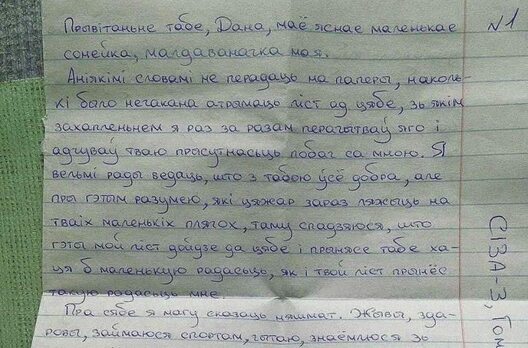 №1
Прывітаньне табе, Дана, маё яснае маленькае
сонейка, малдаваначка мая.
Аніякімі словамі не перадаць на паперы, наколь-
кі было нечакана атрымаць ліст ад цябе, зь якім
захапленьнем я раз за разам перачытваў яго і
адчуваў тваю прысутнасьць побач са мною. Я
вельмі рады ведаць, што з табою ўсё добра, але
пры гэтым разумею, які цяжар зараз ляжыць на
тваіх маленькіх плячох, таму спадзяюся, што
гэты мой ліст дойдзе да цябе і прынясе табе ха-
ця б маленькую радасьць, як і твой ліст прынёс
такую радасьць мне.
Пра сябе я магу сказаць няшмат. Жывы, зда-
ровы, займаюся спортам, чытаю, знаёмлюся зь
СІЗА-3, Гом